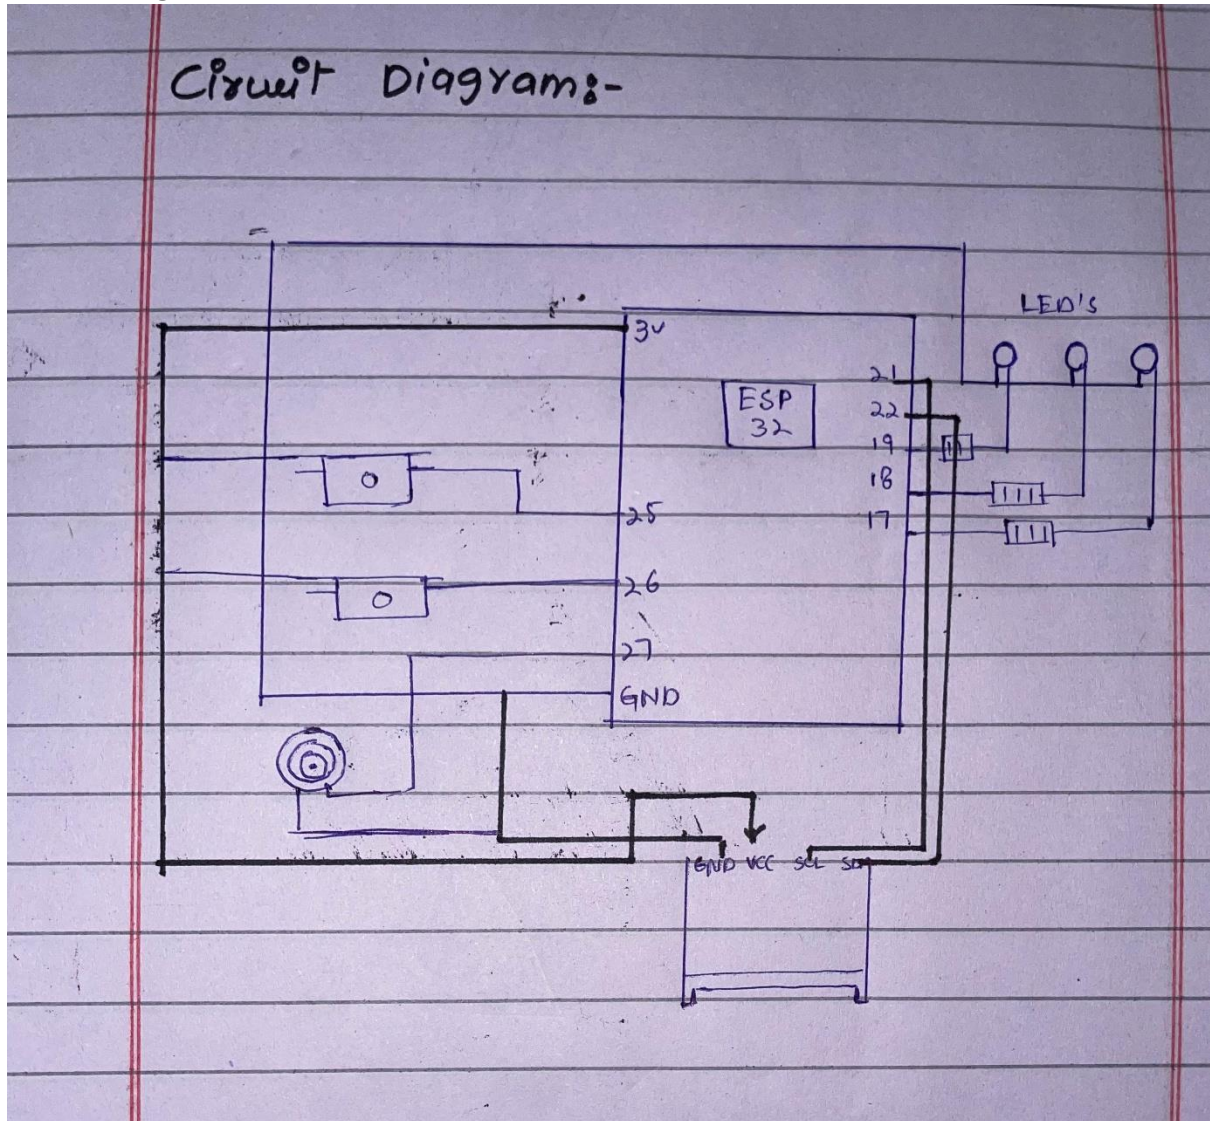 Circuit Diagram:-
LED'S
3V
21
ESP
32
22
19
18
25
17
26
27
GND
GND VCC SCL SDA